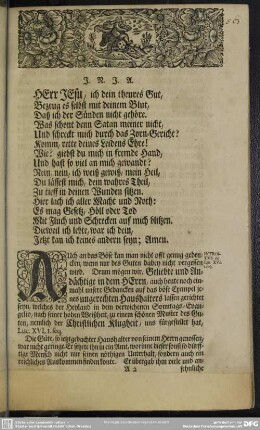 J. N. J. A.
HErr JEsu, ich dein theures Gut,
Bezeug es selbst mit deinem Blut,
Daß ich der Sünden nicht gehöre.
Was schont denn Satan meiner nicht,
Und schreckt mich durch das Zorn-Gericht?
Komm, rette deines Leidens Ehre!
Wie? giebst du mich in fremde Hand,
Und hast so viel an mich gewandt?
Nein, nein, ich weiß gewiß, mein Heil,
Du lässest mich, dein wahres Theil,
Zu tieff in deinen Wunden sitzen.
Hier lach ich aller Macht und Noth;
Es mag Gesetz, Höll oder Tod
Mit Fluch und Schrecken auf mich blitzen.
Dieweil ich lebte, war ich dein,
Jetzt kan ich keines andern seyn; Amen.
Auch an das Böse kan man nicht offt genug geden-
cken, wenn nur des Guten dabey nicht vergessen
wird. Drum mögen wir, Geliebte und An-
dächtige in dem HErrn, auch heute noch ein-
mahl unsere Gedancken auf das böse Exempel je-
nes ungerechten Haushalters lassen gerichtet
seyn, welches der Heyland in dem verwichenen Sonntags-Evan-
gelio, nach seiner hohen Weißheit, zu einem schönen Muster des Gu-
ten, nemlich der Christlichen Klugheit, uns fürgestellet hat,
Luc. XVI, 1. seq.
Die Güte, so itztgedachter Haushalter von seinem Herrn genossen,
war nicht geringe. Er setzte ihn in ein Amt, worinn dieser sonst so dürff-
tige Mensch nicht nur seinen nöthigen Unterhalt, sondern auch ein
reichliches Auskommen finden konte. Er übergab ihm viele und an-
A 2
sehnliche